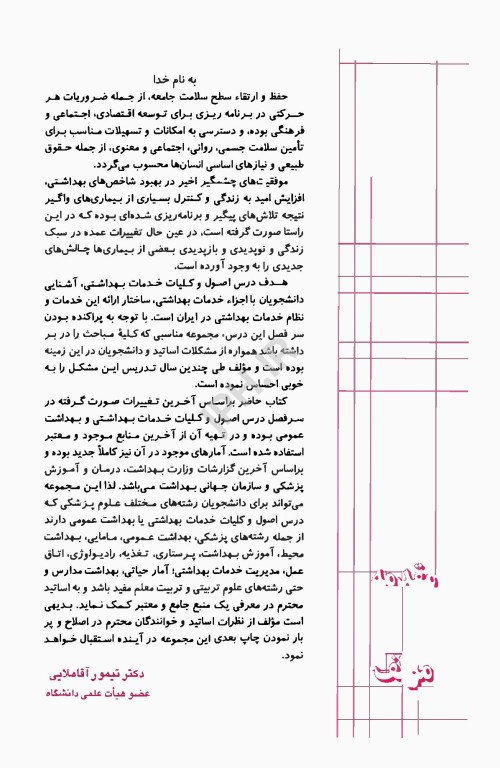 به نام خدا
حفظ و ارتقاء سطح سلامت جامعه، از جمله ضروریات هر
حرکتی در برنامه ریزی برای توسعه اقتصادی، اجتماعی و
فرهنگی بوده، و دسترسی به امکانات و تسهیلات مناسب برای
تأمین سلامت جسمی، روانی، اجتماعی و معنوی، از جمله حقوق
طبیعی و نیازهای اساسی انسان‌ها محسوب می‌گردد.
موفقیت‌های چشمگیر اخیر در بهبود شاخص‌های بهداشتی،
افزایش امید به زندگی و کنترل بسیاری از بیماری‌های واگیر
نتیجه تلاش‌های پیگیر و برنامه‌ریزی شده‌ای بوده که در این
راستا صورت گرفته است، در عین حال تغییرات عمده در سبک
زندگی و نوپدیدی و بازپدیدی بعضی از بیماری‌ها چالش‌های
جدیدی را به وجود آورده است.
هدف درس اصول و کلیات خدمات بهداشتی، آشنایی
دانشجویان با اجزاء خدمات بهداشتی، ساختار ارائه این خدمات و
نظام خدمات بهداشتی در ایران است. با توجه به پراکنده بودن
سر فصل این درس، مجموعه مناسبی که کلیهٔ مباحث را در بر
داشته باشد همواره از مشکلات اساتید و دانشجویان در این زمینه
بوده است و مؤلف طی چندین سال تدریس این مشکل را به
خوبی احساس نموده است.
کتاب حاضر براساس آخرین تغییرات صورت گرفته در
سرفصل درس اصول و کلیات خدمات بهداشتی و بهداشت
عمومی بوده و در تهیه آن از آخرین منابع موجود و معتبر
استفاده شده است. آمارهای موجود در آن نیز کاملاً جدید بوده و
براساس آخرین گزارشات وزارت بهداشت، درمان و آموزش
پزشکی و سازمان جهانی بهداشت می‌باشد. لذا این مجموعه
می‌تواند برای دانشجویان رشته‌های مختلف علوم پزشکی که
درس اصول و کلیات خدمات بهداشتی یا بهداشت عمومی دارند
از جمله رشته‌های پزشکی، بهداشت عمومی، مامایی، بهداشت
محیط، آموزش بهداشت، پرستاری، تغذیه، رادیولوژی، اتاق
عمل، مدیریت خدمات بهداشتی؛ آمار حیاتی، بهداشت مدارس و
حتی رشته‌های علوم تربیتی و تربیت معلم مفید باشد و به اساتید
محترم در معرفی یک منبع جامع و معتبر کمک نماید. بدیهی
است مؤلف از نظرات اساتید و خوانندگان محترم در اصلاح و پر
بار نمودن چاپ بعدی این مجموعه در آینده استقبال خواهد
نمود.
دکتر تیمور آقاملایی
عضو هیأت علمی دانشگاه